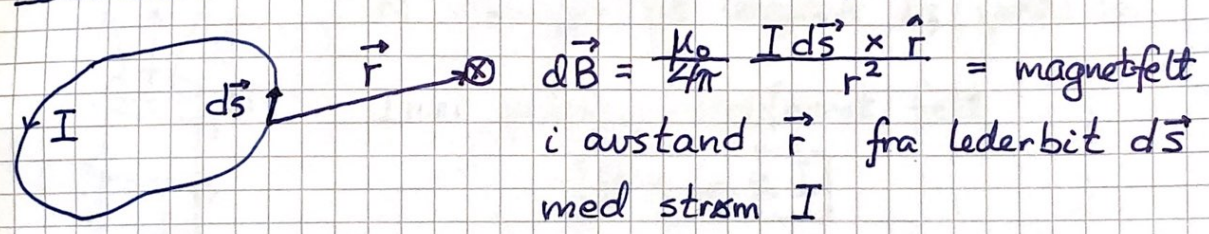 I
ds⃗
r⃗
dB⃗ = μ₀/4π · I ds⃗ × r̂ / r² = magnetfelt
i avstand r⃗ fra lederbit ds⃗
med strøm I